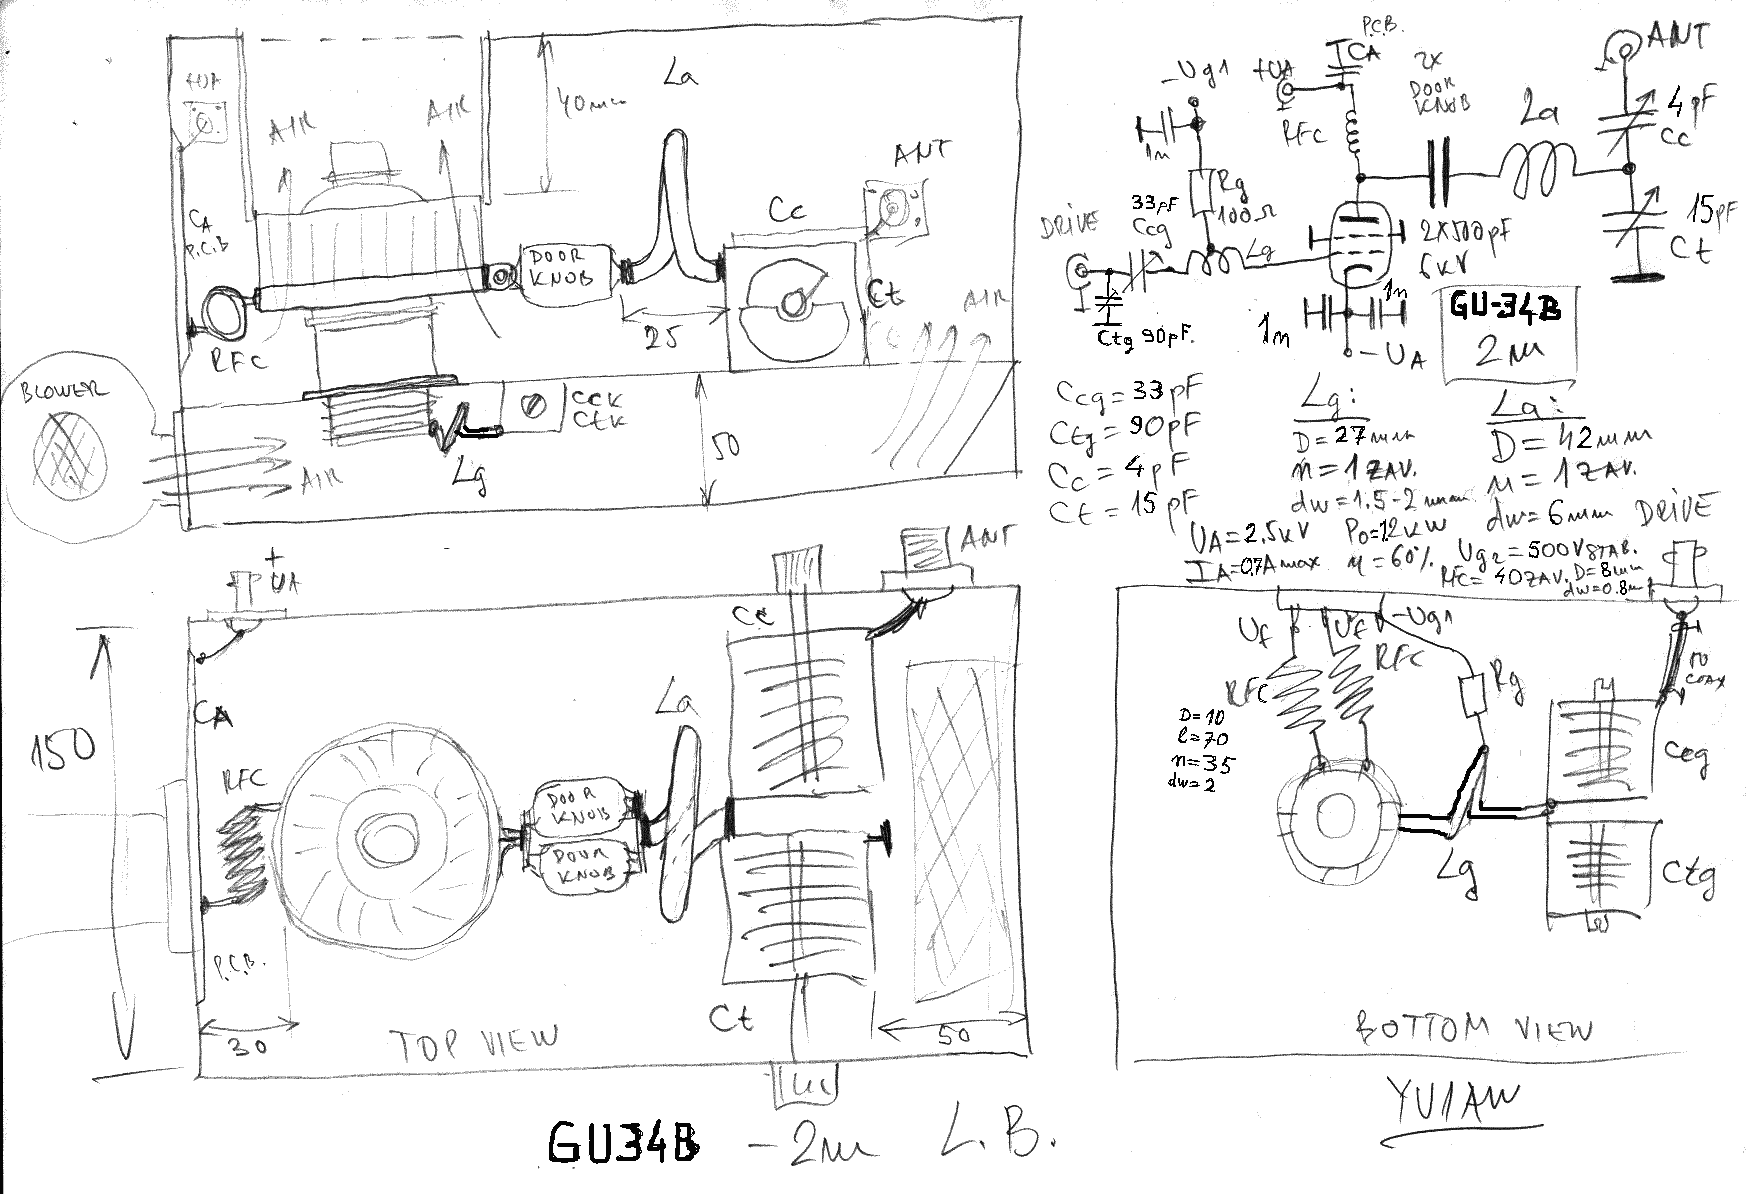 +UA
AIR
AIR
40mm
La
ANT
CA
P.C.B
Cc
DOOR
KNOB
Ct
AIR
RFC
25
BLOWER
CCK
CTK
50
AIR
Lg
P.C.B.
CA
-Ug1
+UA
2x
DOOR
KNOB
ANT
La
4pF
Cc
1n
RFC
Rg
100Ω
33pF
Ccg
DRIVE
Lg
2x500pF
6kV
15pF
Ct
1n
1n
Ctg 90pF.
-UA
GU-34B
2m
Ccg = 33pF
Ctg = 90pF
Cc = 4pF
Ct = 15pF
Lg:
D = 27mm
n = 1 ZAV.
dw = 1.5-2mm
La:
D = 42mm
n = 1 ZAV.
dw = 6mm
UA = 2,5kV Po = 1.2kW
IA = 0,7A max η = 60%. Ug2 = 500V STAB.
RFC = 40 ZAV. D = 8mm
dw = 0.8mm
+
UA
ANT
Cc
CA
La
150
RFC
DOOR
KNOB
DOOR
KNOB
P.C.B.
Ct
30
TOP VIEW
50
DRIVE
Uf
Uf
-Ug1
RFC
RFC
Rg
COAX
D=10
l=70
n=35
dw=2
Ccg
Lg
Ctg
BOTTOM VIEW
YU1AW
GU34B - 2m L.B.